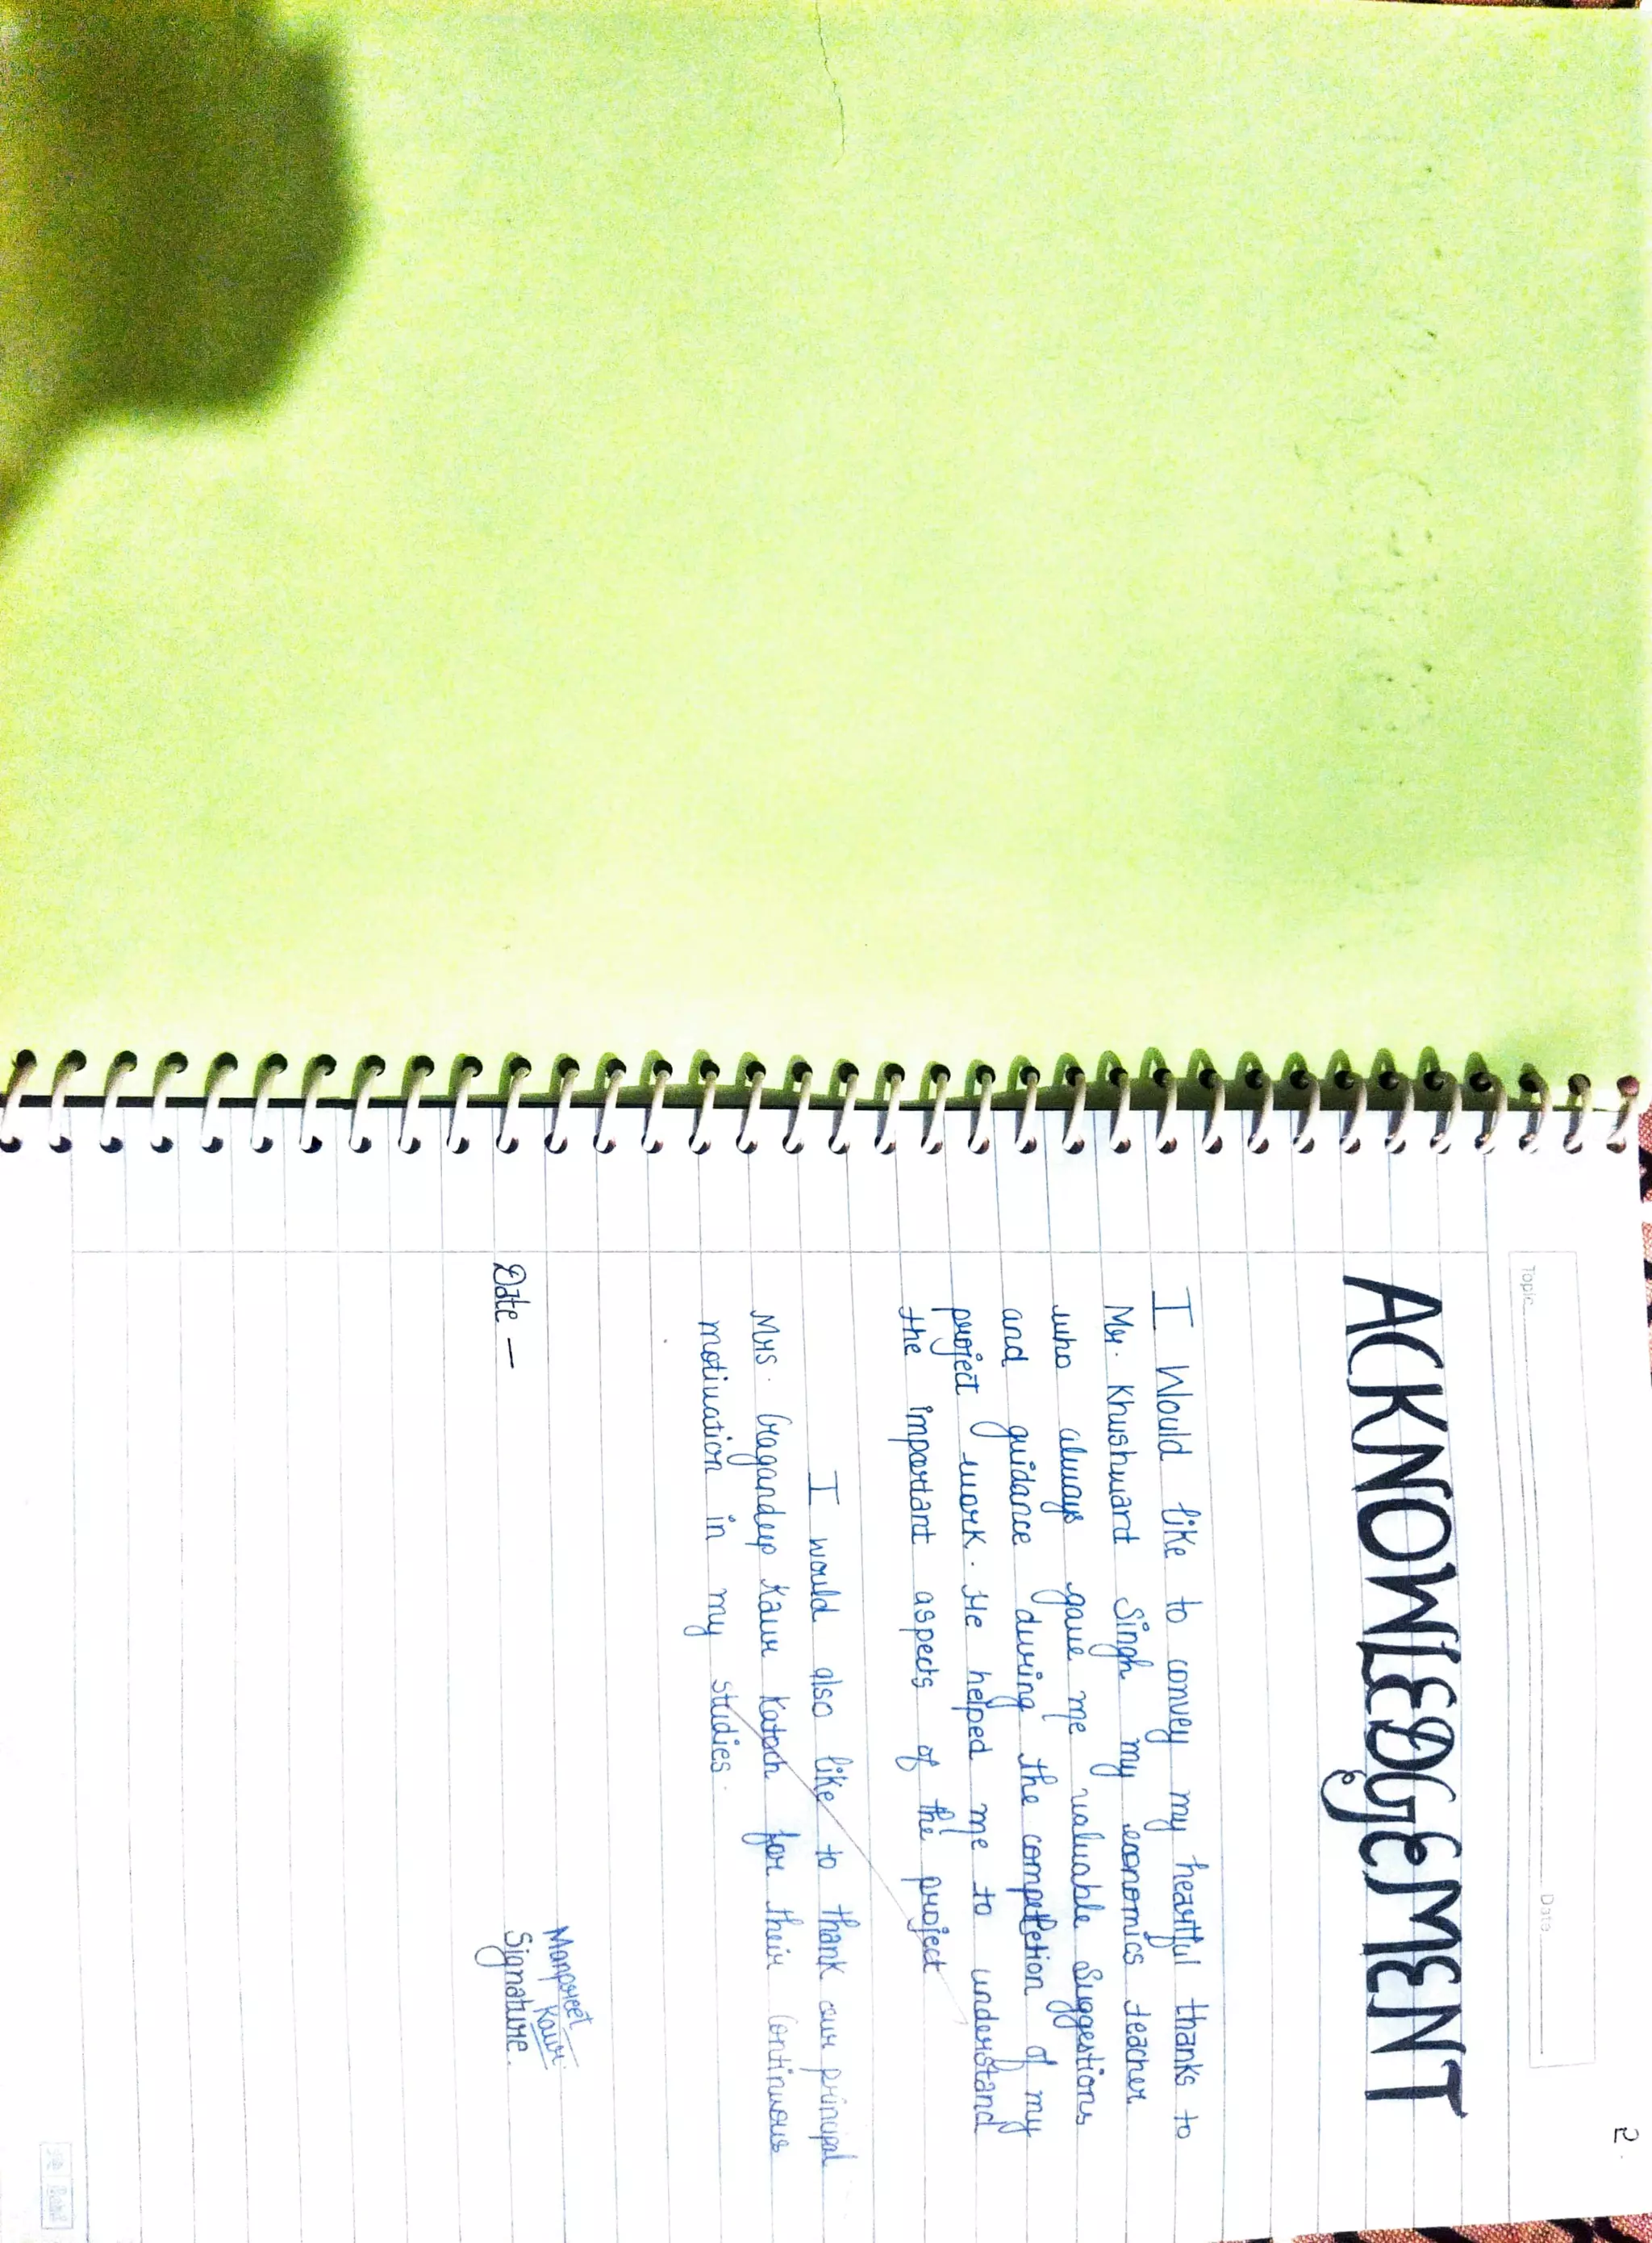 2
Topic
Date
ACKNOWLEDGEMENT
I Would like to convey my heartful thanks to
Mr. Khushwant Singh my economics teacher
who always gave me valuable Suggestions
and guidance during the completion of my
project work. He helped me to understand
the important aspects of the project
I would also like to thank our principal
Mrs. Gagandeep Kaur Katoch for their Continuous
motivation in my studies.
Manpreet
Kaur
Date —
Signature.